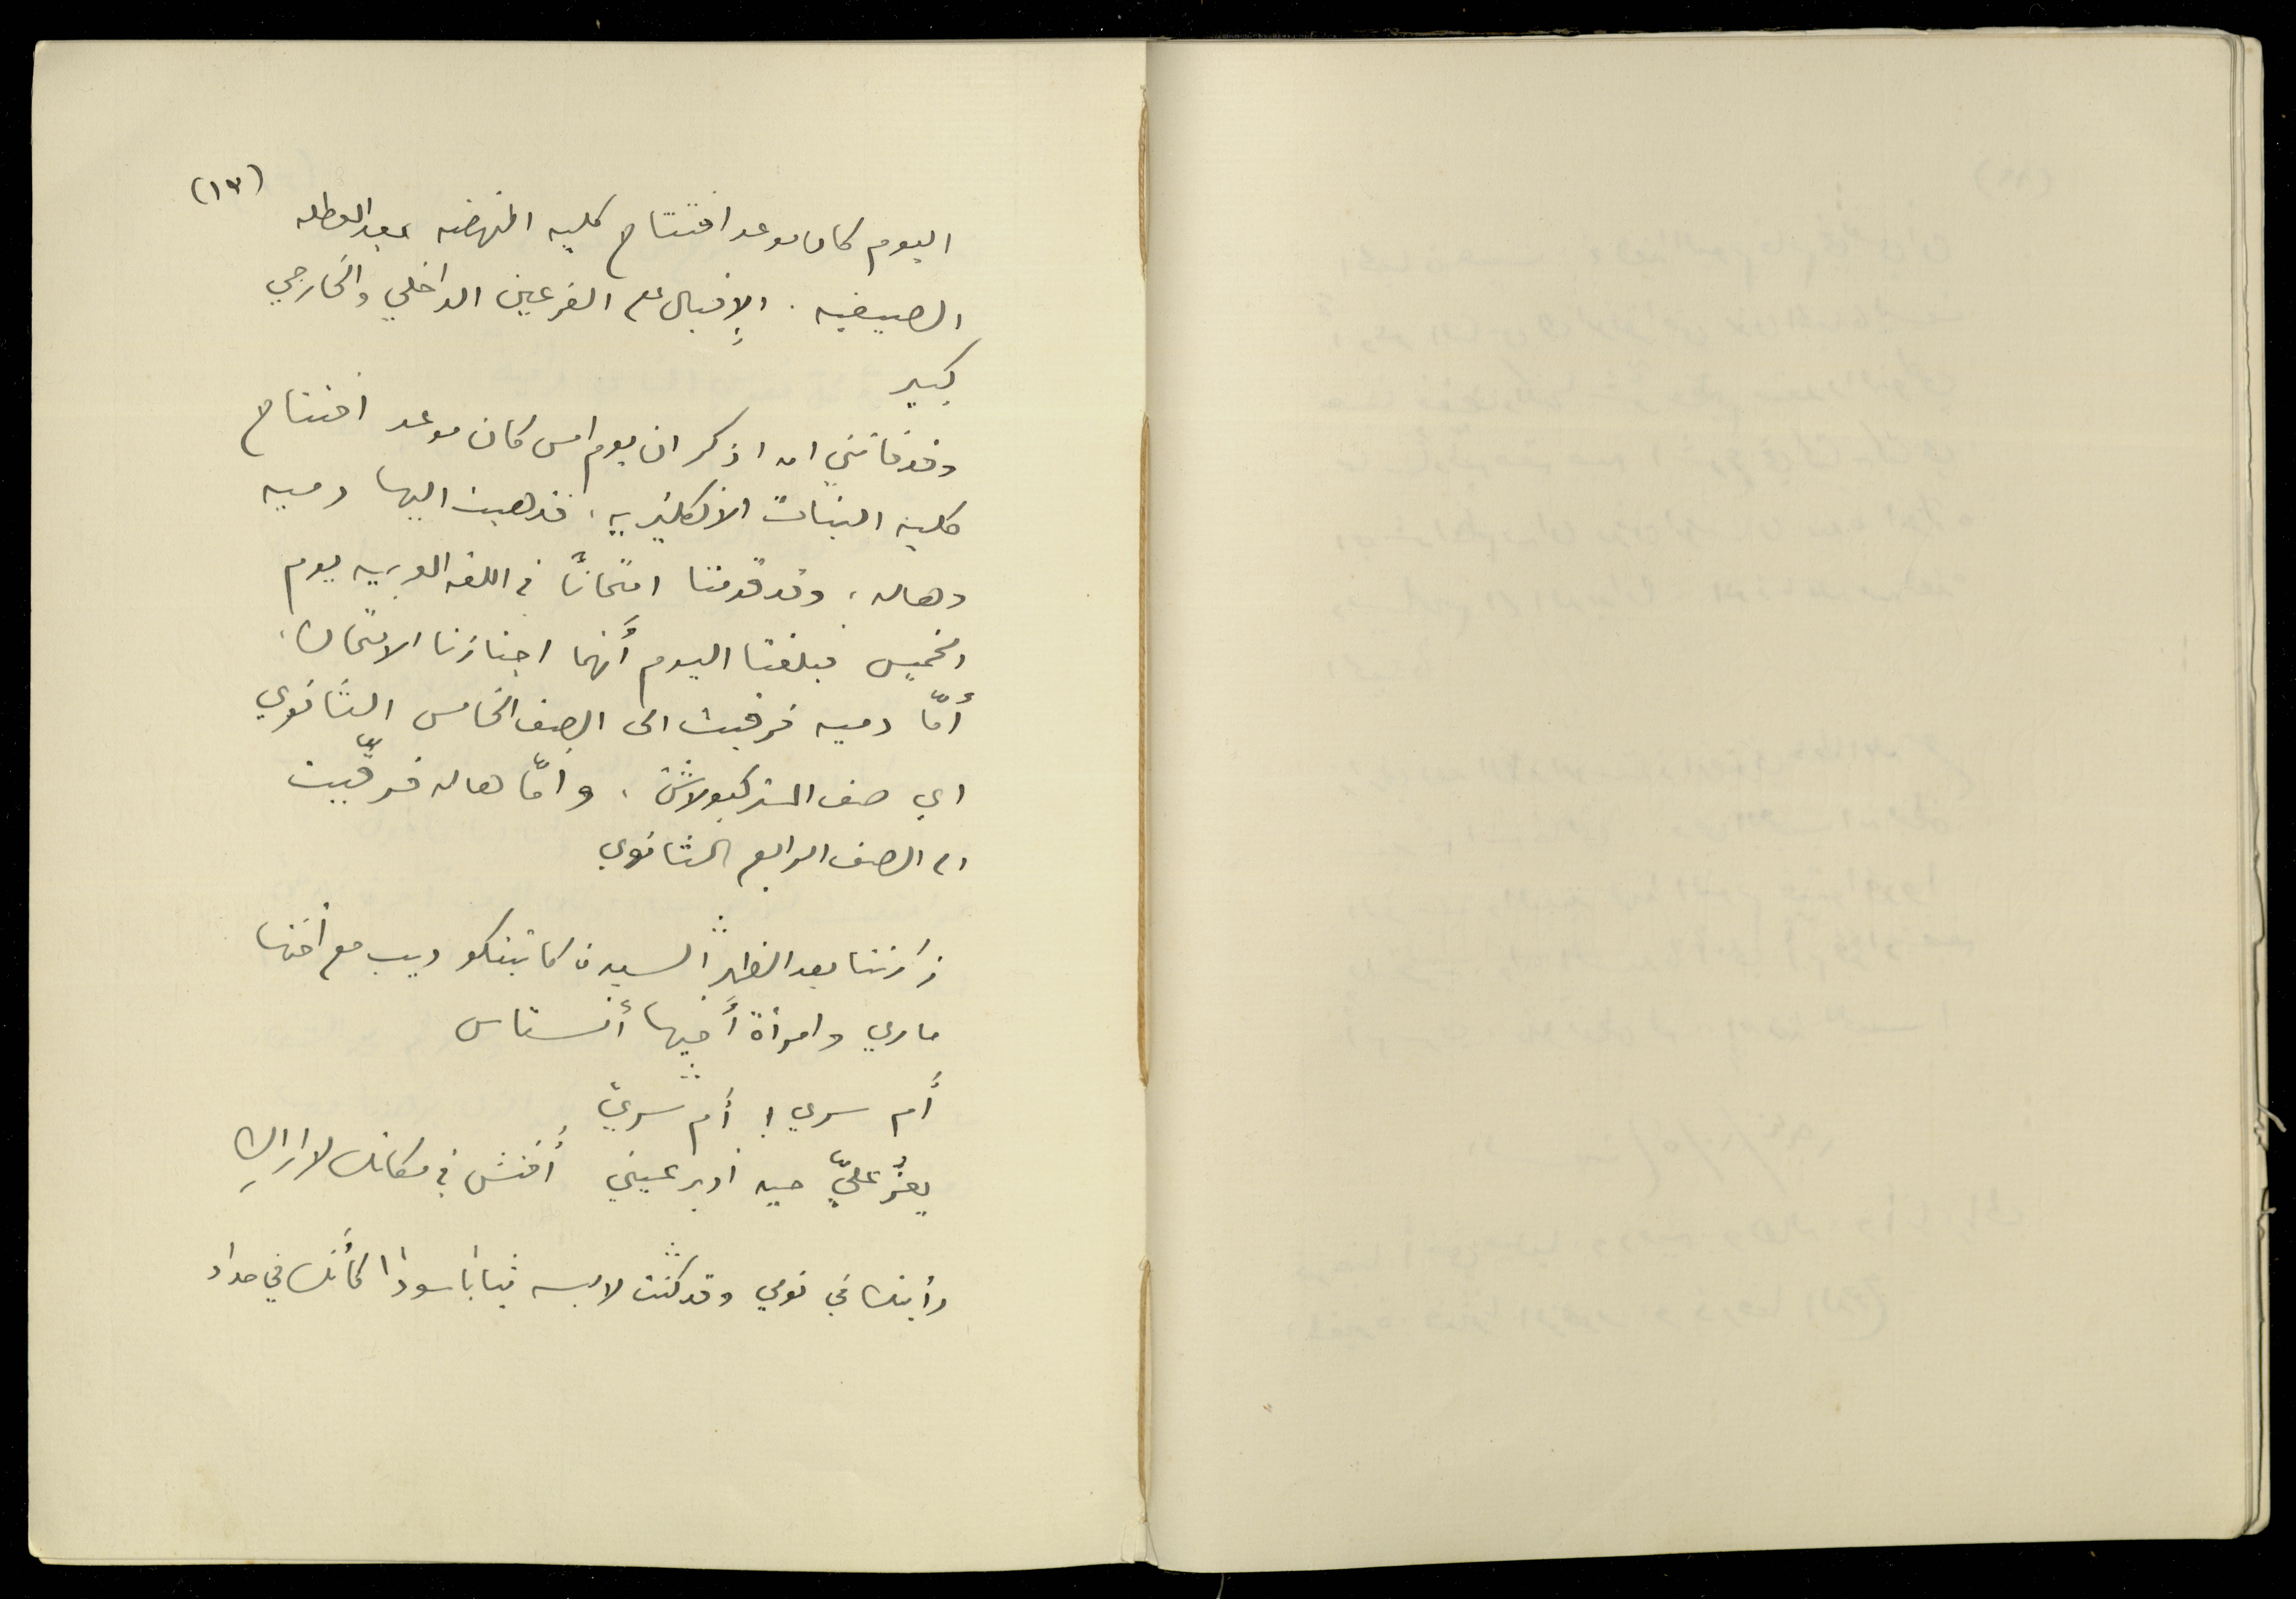 (١٣)
اليوم كان موعد افتتاح كليه النهضه بعد العطله
الصيفيه . الإقبال على الفرعين الداخلي والخارجي
كبير
وقد فاتني ان اذكر ان يوم امس كان موعد افتتاح
كلية البنات الانكليزيه ، فذهبت اليها دميه
وهاله ، وقد قدمتا امتحانًا في اللغه العربيه يوم
الخميس فبلغنا اليوم أنهما اجتازتا الامتحان ،
أمّا دميه فرقيت الى الصف الخامس الثانوي
اي صف المتركيولاشن ، وأمّا هاله فرقّيت
الى الصف الرابع الثانوي
زارتنا بعد الظهر السيدة كاتينكو ديب مع أختها
ماري وامرأة أخيها أنستاس
أم سري ! أم سري
يعزُّ عليّ حين أدير عيني أفتش في مكانك لا اراكِ
رأيتك في نومي وقد كنت لابسه ثيابا سودا كأنك في حداد